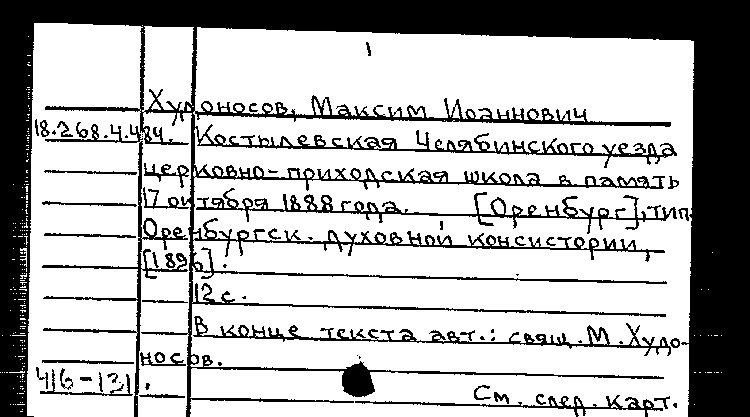 1
Худоносов, Максим Иоаннович
18.268.4.484. Костылевская Челябинского уезда
церковно-приходская школа в память
17 октября 1888 года. [Оренбург], тип.
Оренбургск. духовной консистории,
[1896].
12 с.
В конце текста авт.: свящ. М. Худо-
носов.
416-131.
См. след. карт.